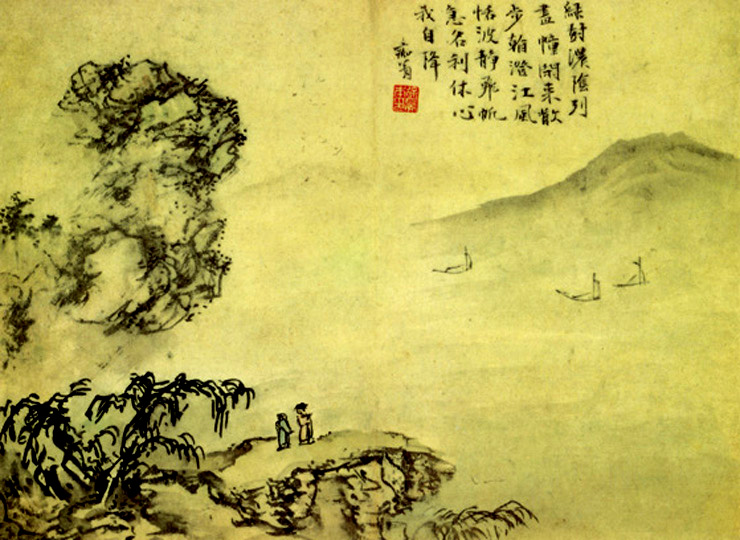 綠樹濃陰列
畫幢閑來散
步澄江風
恬波靜飛帆
急名利休心
我自降